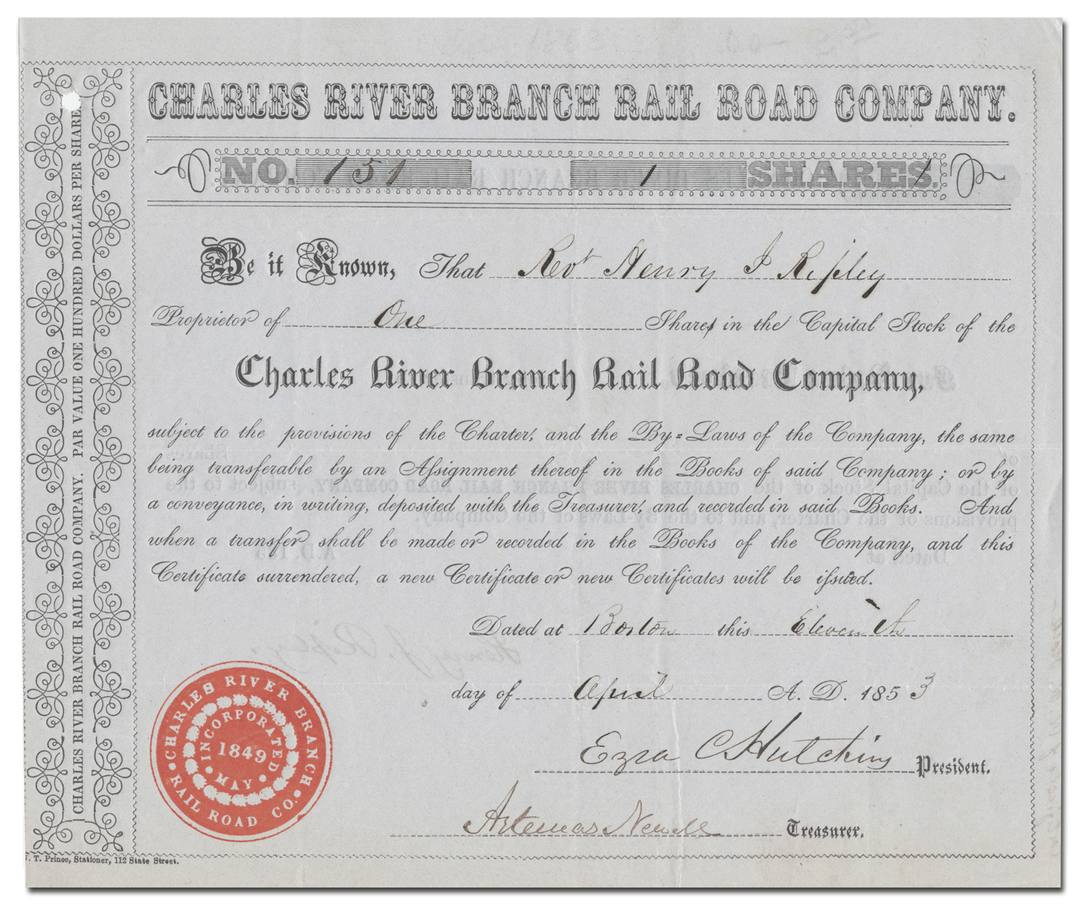 CHARLES RIVER BRANCH RAIL ROAD COMPANY.
NO. 151 1 SHARES.
Be it Known, That Revt Henry J Ripley
Proprietor of One Shares in the Capital Stock of the
Charles River Branch Rail Road Company,
subject to the provisions of the Charter, and the By=Laws of the Company, the same
being transferable by an Assignment thereof in the Books of said Company; or by
a conveyance, in writing, deposited with the Treasurer, and recorded in said Books. And
when a transfer shall be made or recorded in the Books of the Company, and this
Certificate surrendered, a new Certificate or new Certificates will be issued.
Dated at Boston this Eleventh
day of April A. D. 1853
Ezra C Hutchins President.
Artemas Newell Treasurer.
CHARLES RIVER BRANCH RAIL ROAD COMPANY. PAR VALUE ONE HUNDRED DOLLARS PER SHARE.
CHARLES RIVER BRANCH
RAIL ROAD CO.
INCORPORATED
1849
MAY
T. Prince, Stationer, 112 State Street.